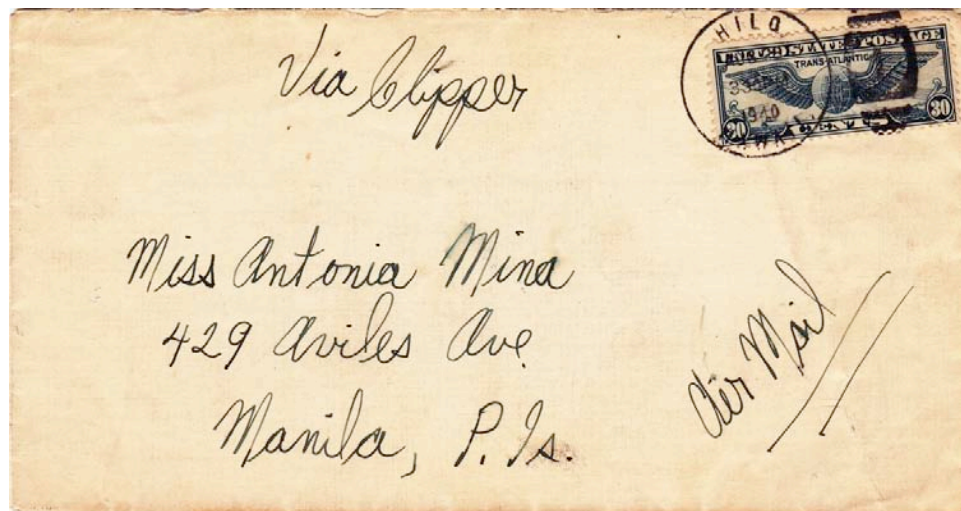 Via Clipper
HILO
1940
UNITED STATES POSTAGE
TRANS-ATLANTIC
30 CENTS 30
Miss Antonia Mina
429 Aviles Ave
Manila, P. Is.
Air Mail